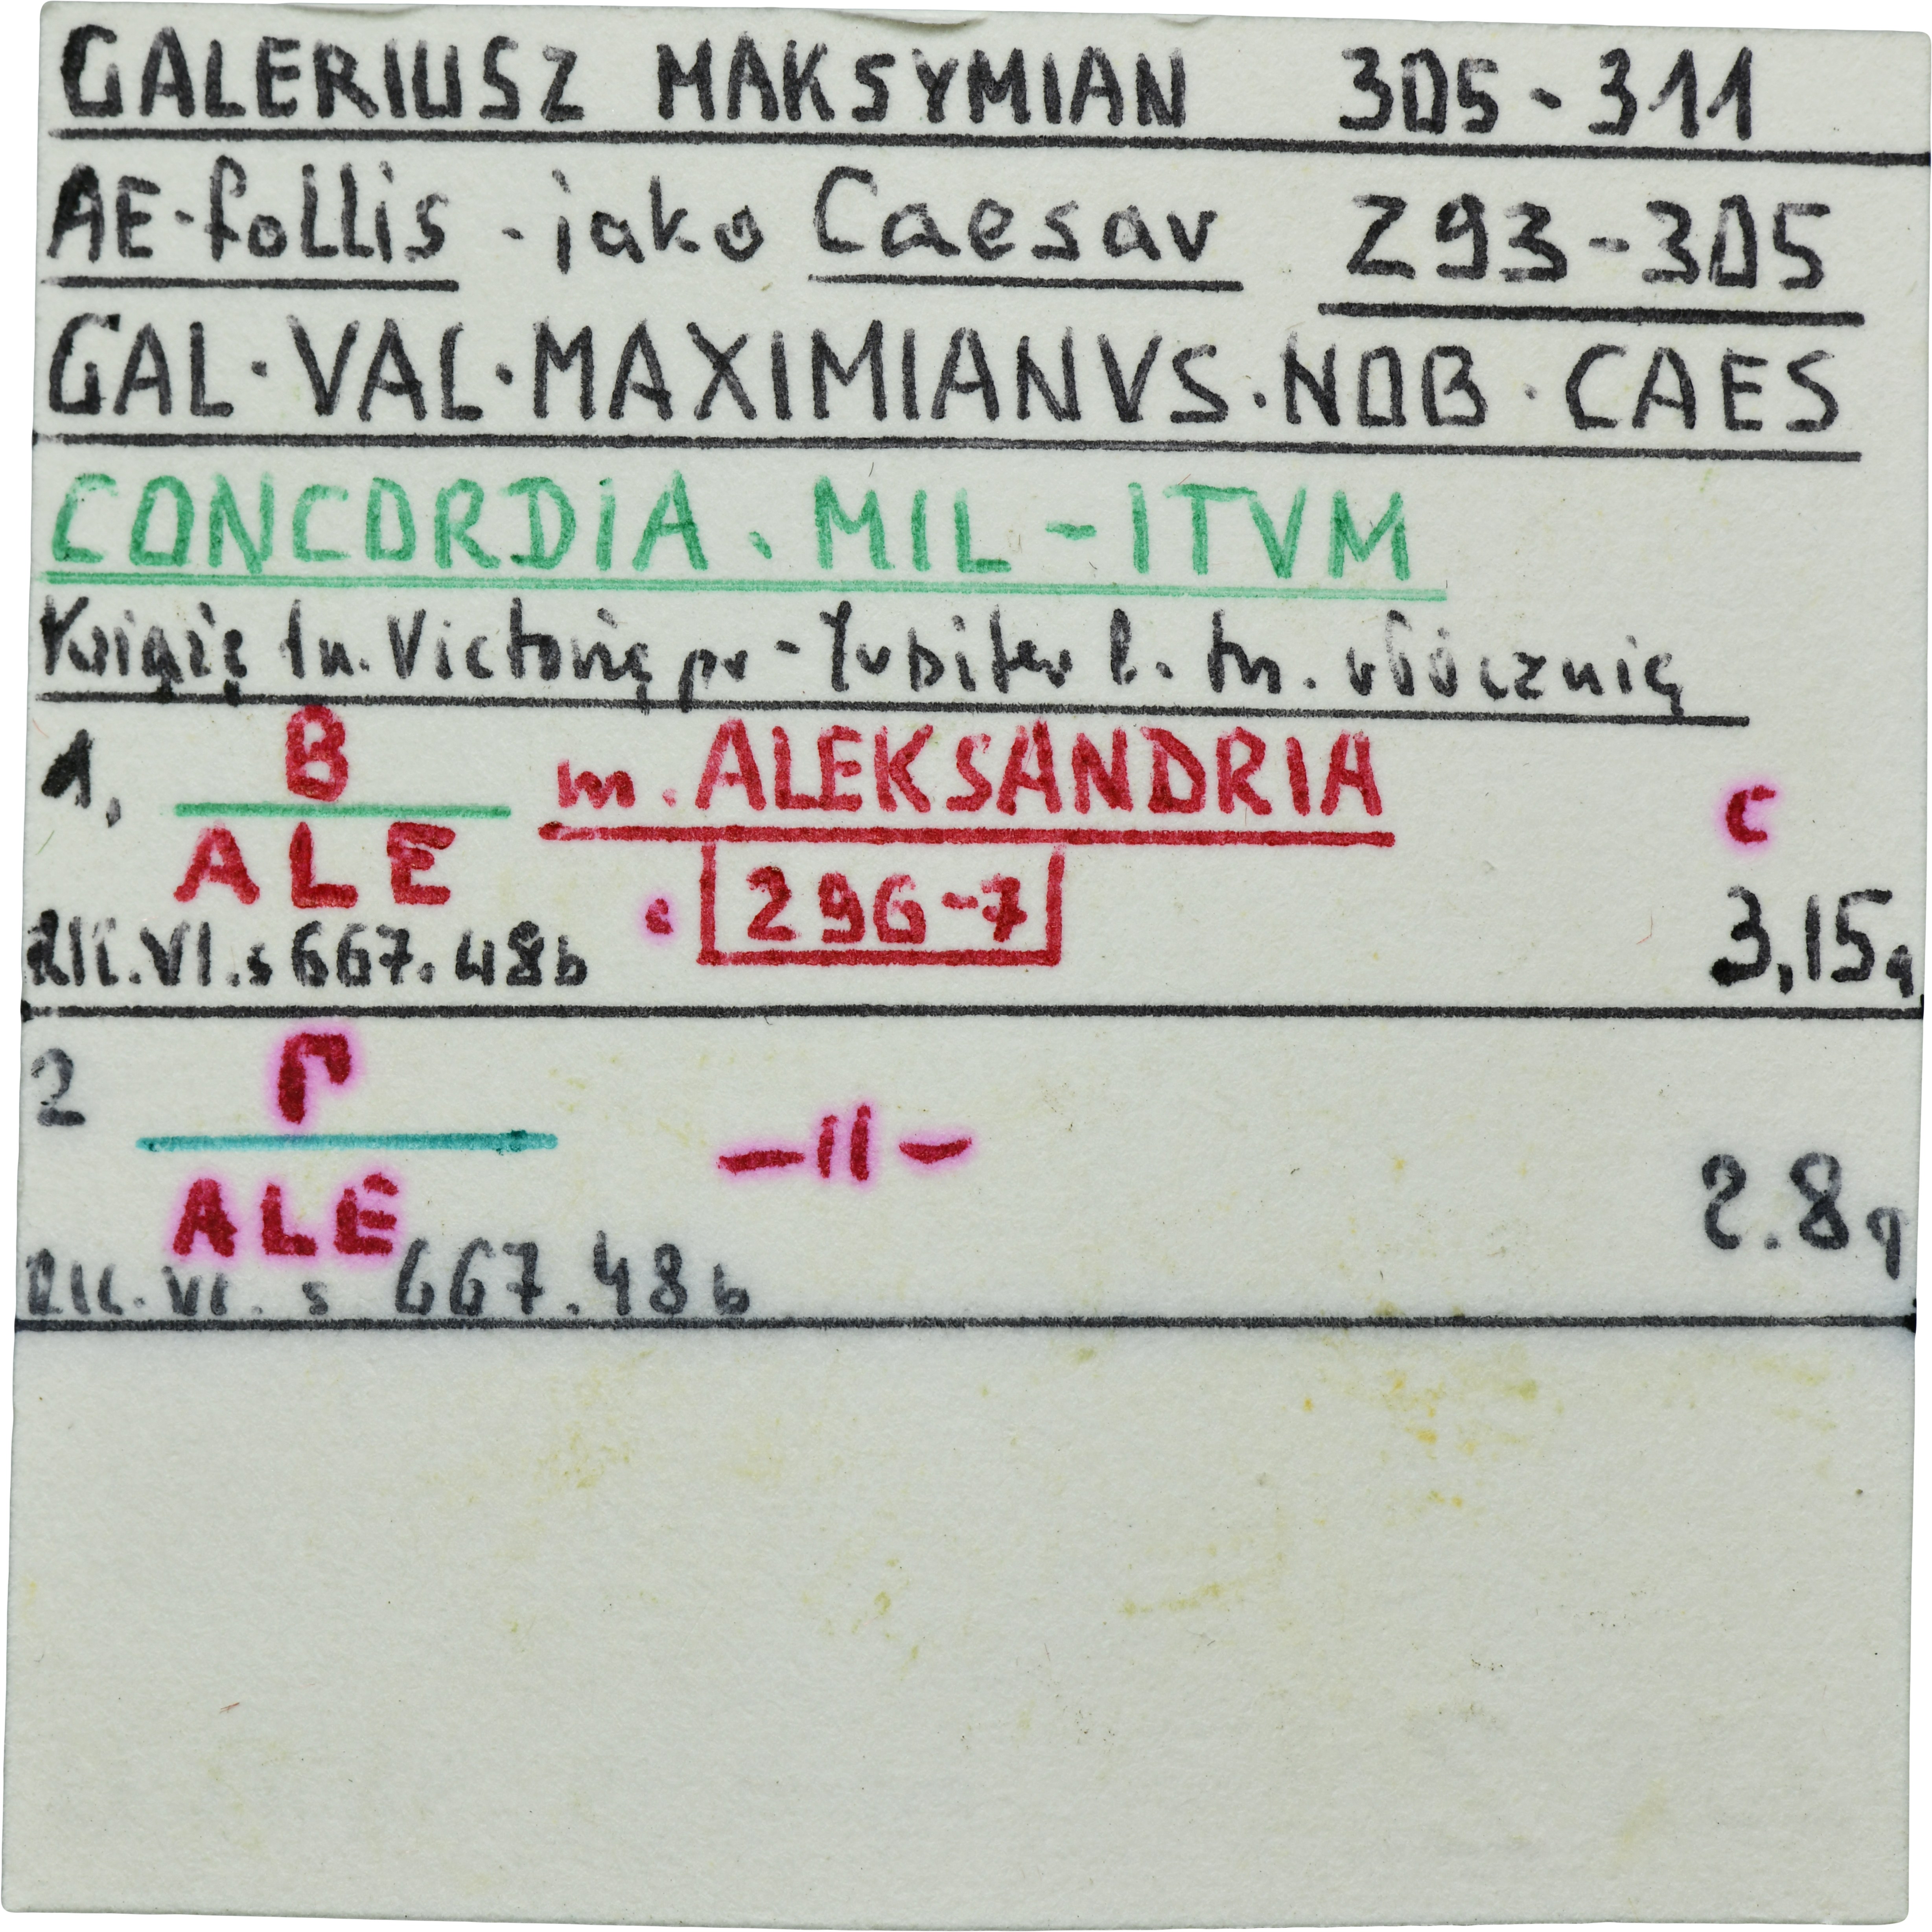 GALERIUSZ MAKSYMIAN 305-311
AE-follis - jako Caesar 293-305
GAL·VAL·MAXIMIANVS·NOB·CAES
CONCORDIA·MIL-ITVM
Książę tn. Victorię pr-Jupiter l. tn. włócznię
1, B m. ALEKSANDRIA c
ALE · 296-7
RIC.VI.s 667.48b 3,15g
2 Γ -II-
ALE 2.8g
RIC.VI.s 667.48b